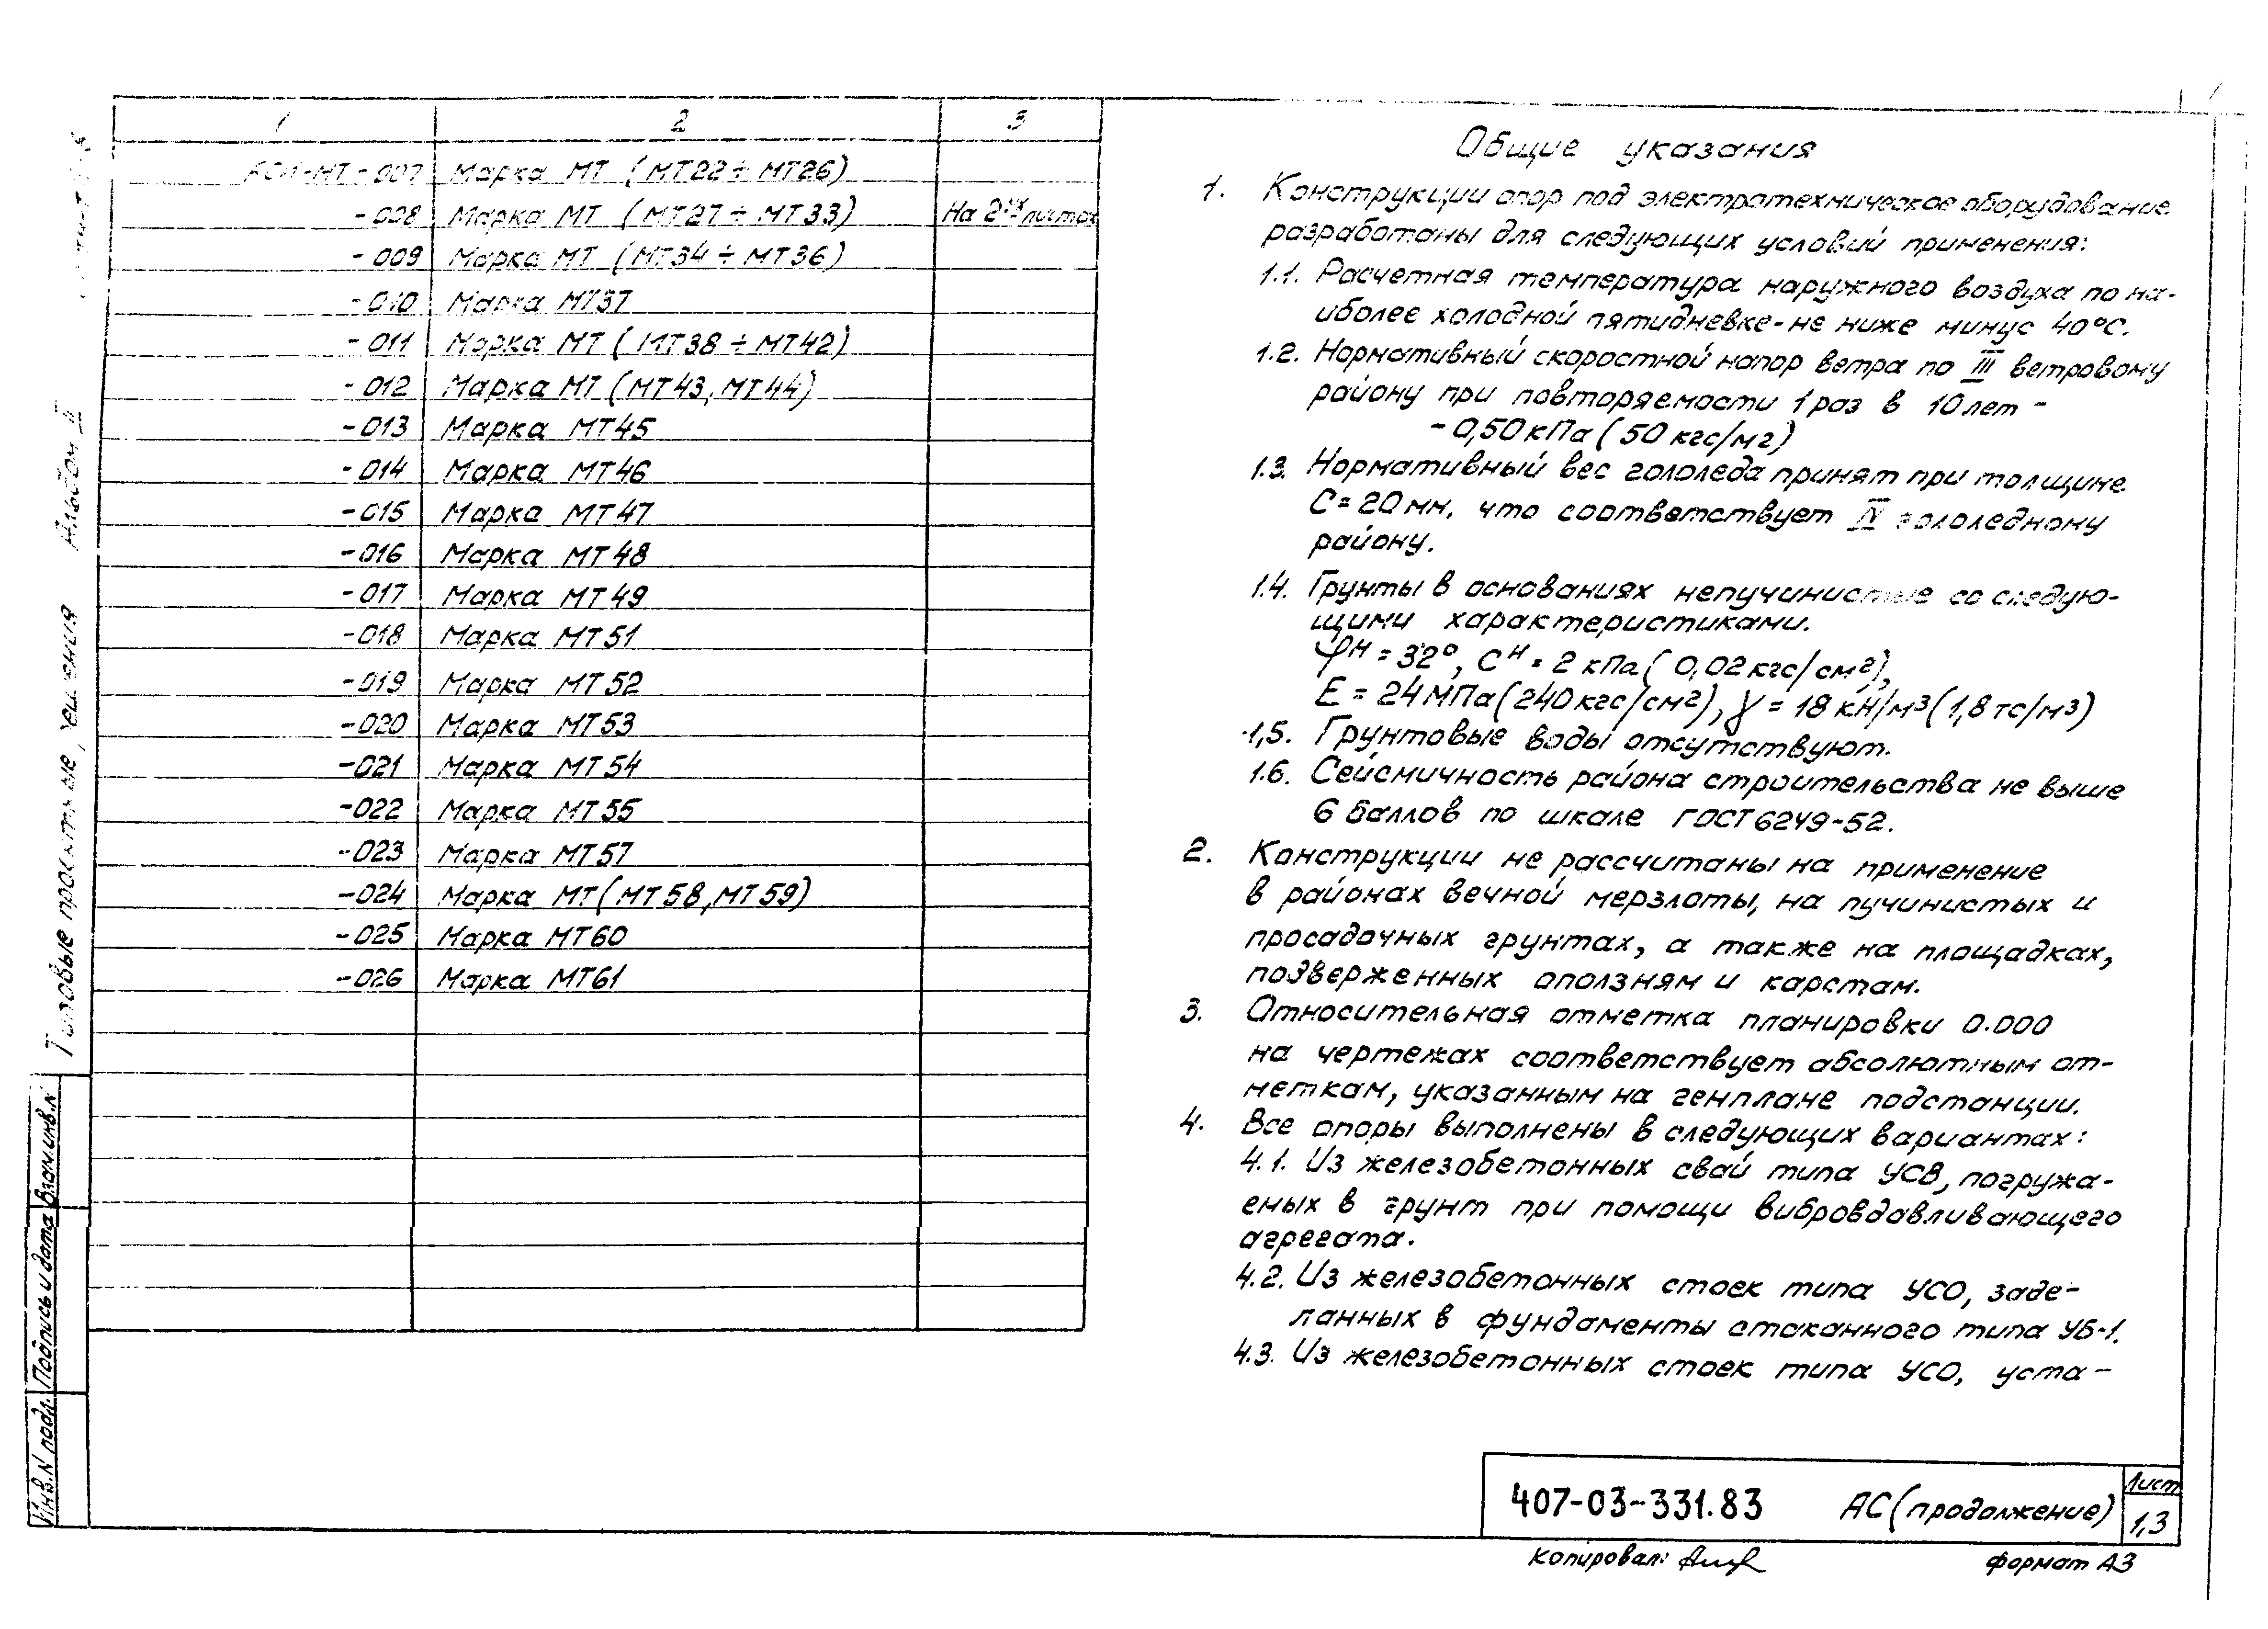 1 2 3
-007 Марка МТ (МТ22÷МТ26)
-008 Марка МТ (МТ27÷МТ33) На 2х листах
-009 Марка МТ (МТ34÷МТ36)
-010 Марка МТ37
-011 Марка МТ (МТ38÷МТ42)
-012 Марка МТ (МТ43, МТ44)
-013 Марка МТ45
-014 Марка МТ46
-015 Марка МТ47
-016 Марка МТ48
-017 Марка МТ49
-018 Марка МТ51
-019 Марка МТ52
-020 Марка МТ53
-021 Марка МТ54
-022 Марка МТ55
-023 Марка МТ57
-024 Марка МТ (МТ58, МТ59)
-025 Марка МТ60
-026 Марка МТ61
Типовые проектные решения Альбом II
Взам.инв.N
Подпись и дата
Инв.N подл.
Общие указания
1. Конструкции опор под электротехническое оборудование
разработаны для следующих условий применения:
1.1. Расчетная температура наружного воздуха по на-
иболее холодной пятидневке-не ниже минус 40°С.
1.2. Нормативный скоростной напор ветра по III ветровому
району при повторяемости 1 раз в 10 лет -
- 0,50 кПа (50 кгс/м2)
1.3. Нормативный вес гололеда принят при толщине
С = 20 мм, что соответствует IV гололедному
району.
1.4. Грунты в основаниях непучинистые со следую-
щими характеристиками.
φн = 32°, Сн = 2 кПа (0,02 кгс/см2),
Е = 24 МПа (240 кгс/см2), γ = 18 кН/м3 (1,8 тс/м3)
1,5. Грунтовые воды отсутствуют.
1.6. Сейсмичность района строительства не выше
6 баллов по шкале ГОСТ 6249-52.
2. Конструкции не рассчитаны на применение
в районах вечной мерзлоты, на пучинистых и
просадочных грунтах, а также на площадках,
подверженных оползням и карстам.
3. Относительная отметка планировки 0.000
на чертежах соответствует абсолютным от-
меткам, указанным на генплане подстанции.
4. Все опоры выполнены в следующих вариантах:
4.1. Из железобетонных свай типа УСВ, погружа-
емых в грунт при помощи вибровдавливающего
агрегата.
4.2. Из железобетонных стоек типа УСО, заде-
ланных в фундаменты стаканного типа УБ-1.
4.3. Из железобетонных стоек типа УСО, уста-
407-03-331.83 АС (продолжение) Лист
1,3
Копировал: формат А3